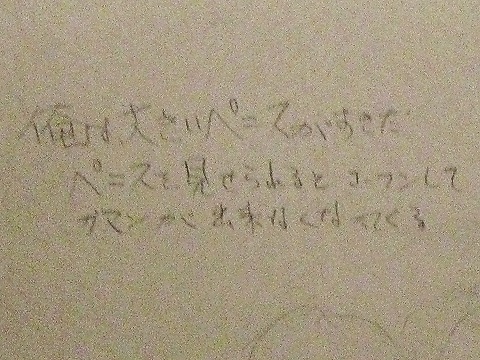 俺は、大きいペニスがすきだ
ペニスを見せられるとコーフンして
ガマンが出来なくなってくる